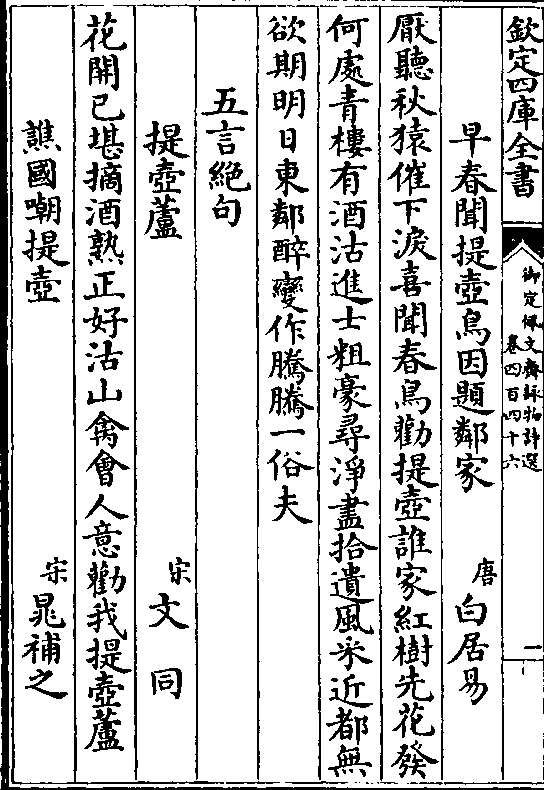 欽定四庫全書
御定佩文齋詠物詩選
卷四百四十六
一
早春聞提壺鳥因題鄰家　唐　白居易
厭聽秋猿催下淚喜聞春鳥勸提壺誰家紅樹先花發
何處青樓有酒沽進士粗豪尋淨盡拾遺風采近都無
欲期明日東鄰醉變作騰騰一俗夫
五言絕句
提壺蘆　宋　文同
花開已堪摘酒熟正好沽山禽會人意勸我提壺蘆
譙國嘲提壺　宋　晁補之